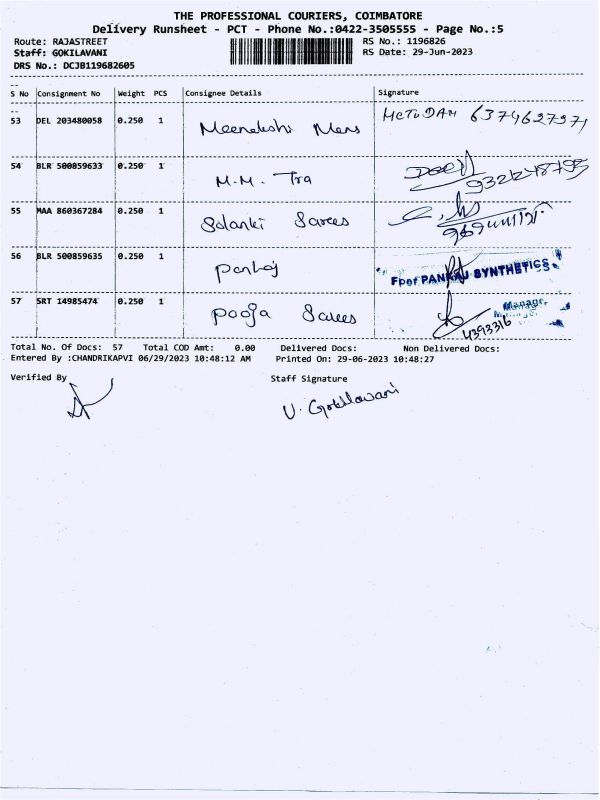 THE PROFESSIONAL COURIERS, COIMBATORE
Delivery Runsheet - PCT - Phone No.:0422-3505555 - Page No.:5
Route: RAJASTREET RS No.: 1196826
Staff: GOKILAVANI RS Date: 29-Jun-2023
DRS No.: DCJB119682605
S No Consignment No Weight PCS Consignee Details Signature
53 DEL 203480058 0.250 1 Meenakshi Mens 6374627971
54 BLR 500859633 0.250 1 M.M. Tra
55 MAA 860367284 0.250 1 Solanki Sarees
56 BLR 500859635 0.250 1 Pankaj For PANKAJ SYNTHETICS
57 SRT 14985474 0.250 1 Pooja Sarees Manager 4393316
Total No. Of Docs: 57 Total COD Amt: 0.00 Delivered Docs: Non Delivered Docs:
Entered By :CHANDRIKAPVI 06/29/2023 10:48:12 AM Printed On: 29-06-2023 10:48:27
Verified By Staff Signature
V. Gokilavani